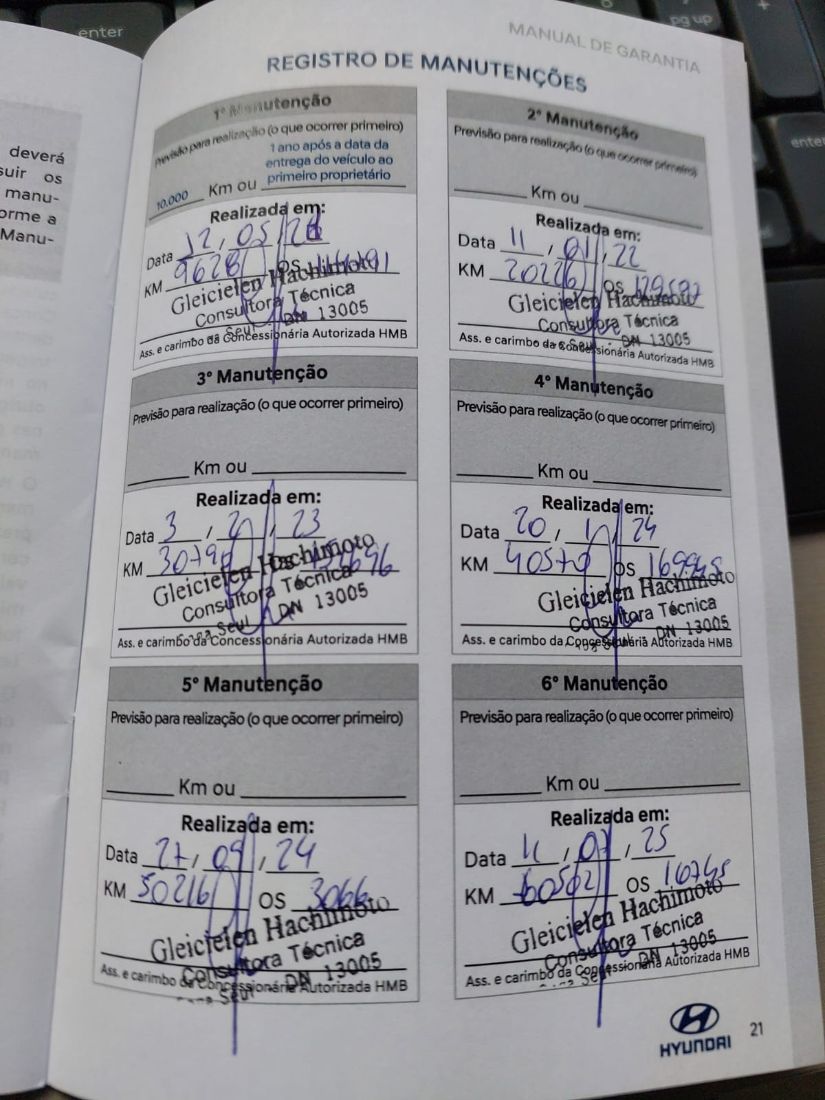 enter
pg up
enter
deverá
suir os
manu-
orme a
Manu-
MANUAL DE GARANTIA
REGISTRO DE MANUTENÇÕES
1º Manutenção
Previsão para realização (o que ocorrer primeiro)
10.000 Km ou 1 ano após a data da
entrega do veículo ao
primeiro proprietário
Realizada em:
Data 12, 05,
KM 9628 OS
Gleicielen Hachimoto
Consultora Técnica
Seul DN 13005
Ass. e carimbo da Concessionária Autorizada HMB
2º Manutenção
Previsão para realização (o que ocorrer primeiro)
Km ou
Realizada em:
Data 11, 01, 22
KM 20226 OS 129597
Gleicielen Hachimoto
Consultora Técnica
Seul DN 13005
Ass. e carimbo da Concessionária Autorizada HMB
3º Manutenção
Previsão para realização (o que ocorrer primeiro)
Km ou
Realizada em:
Data 3, 2, 23
KM 30790 OS
Gleicielen Hachimoto
Consultora Técnica
Seul DN 13005
Ass. e carimbo da Concessionária Autorizada HMB
4º Manutenção
Previsão para realização (o que ocorrer primeiro)
Km ou
Realizada em:
Data 20, 1, 24
KM 40570 OS 169945
Gleicielen Hachimoto
Consultora Técnica
DN 13005
Ass. e carimbo da Concessionária Autorizada HMB
5º Manutenção
Previsão para realização (o que ocorrer primeiro)
Km ou
Realizada em:
Data 27, 09, 24
KM 50216 OS 3066
Gleicielen Hachimoto
Consultora Técnica
Seul DN 13005
Ass. e carimbo da Concessionária Autorizada HMB
6º Manutenção
Previsão para realização (o que ocorrer primeiro)
Km ou
Realizada em:
Data 11, 07, 25
KM 60502 OS 16745
Gleicielen Hachimoto
Consultora Técnica
Seul DN 13005
Ass. e carimbo da Concessionária Autorizada HMB
HYUNDAI
21